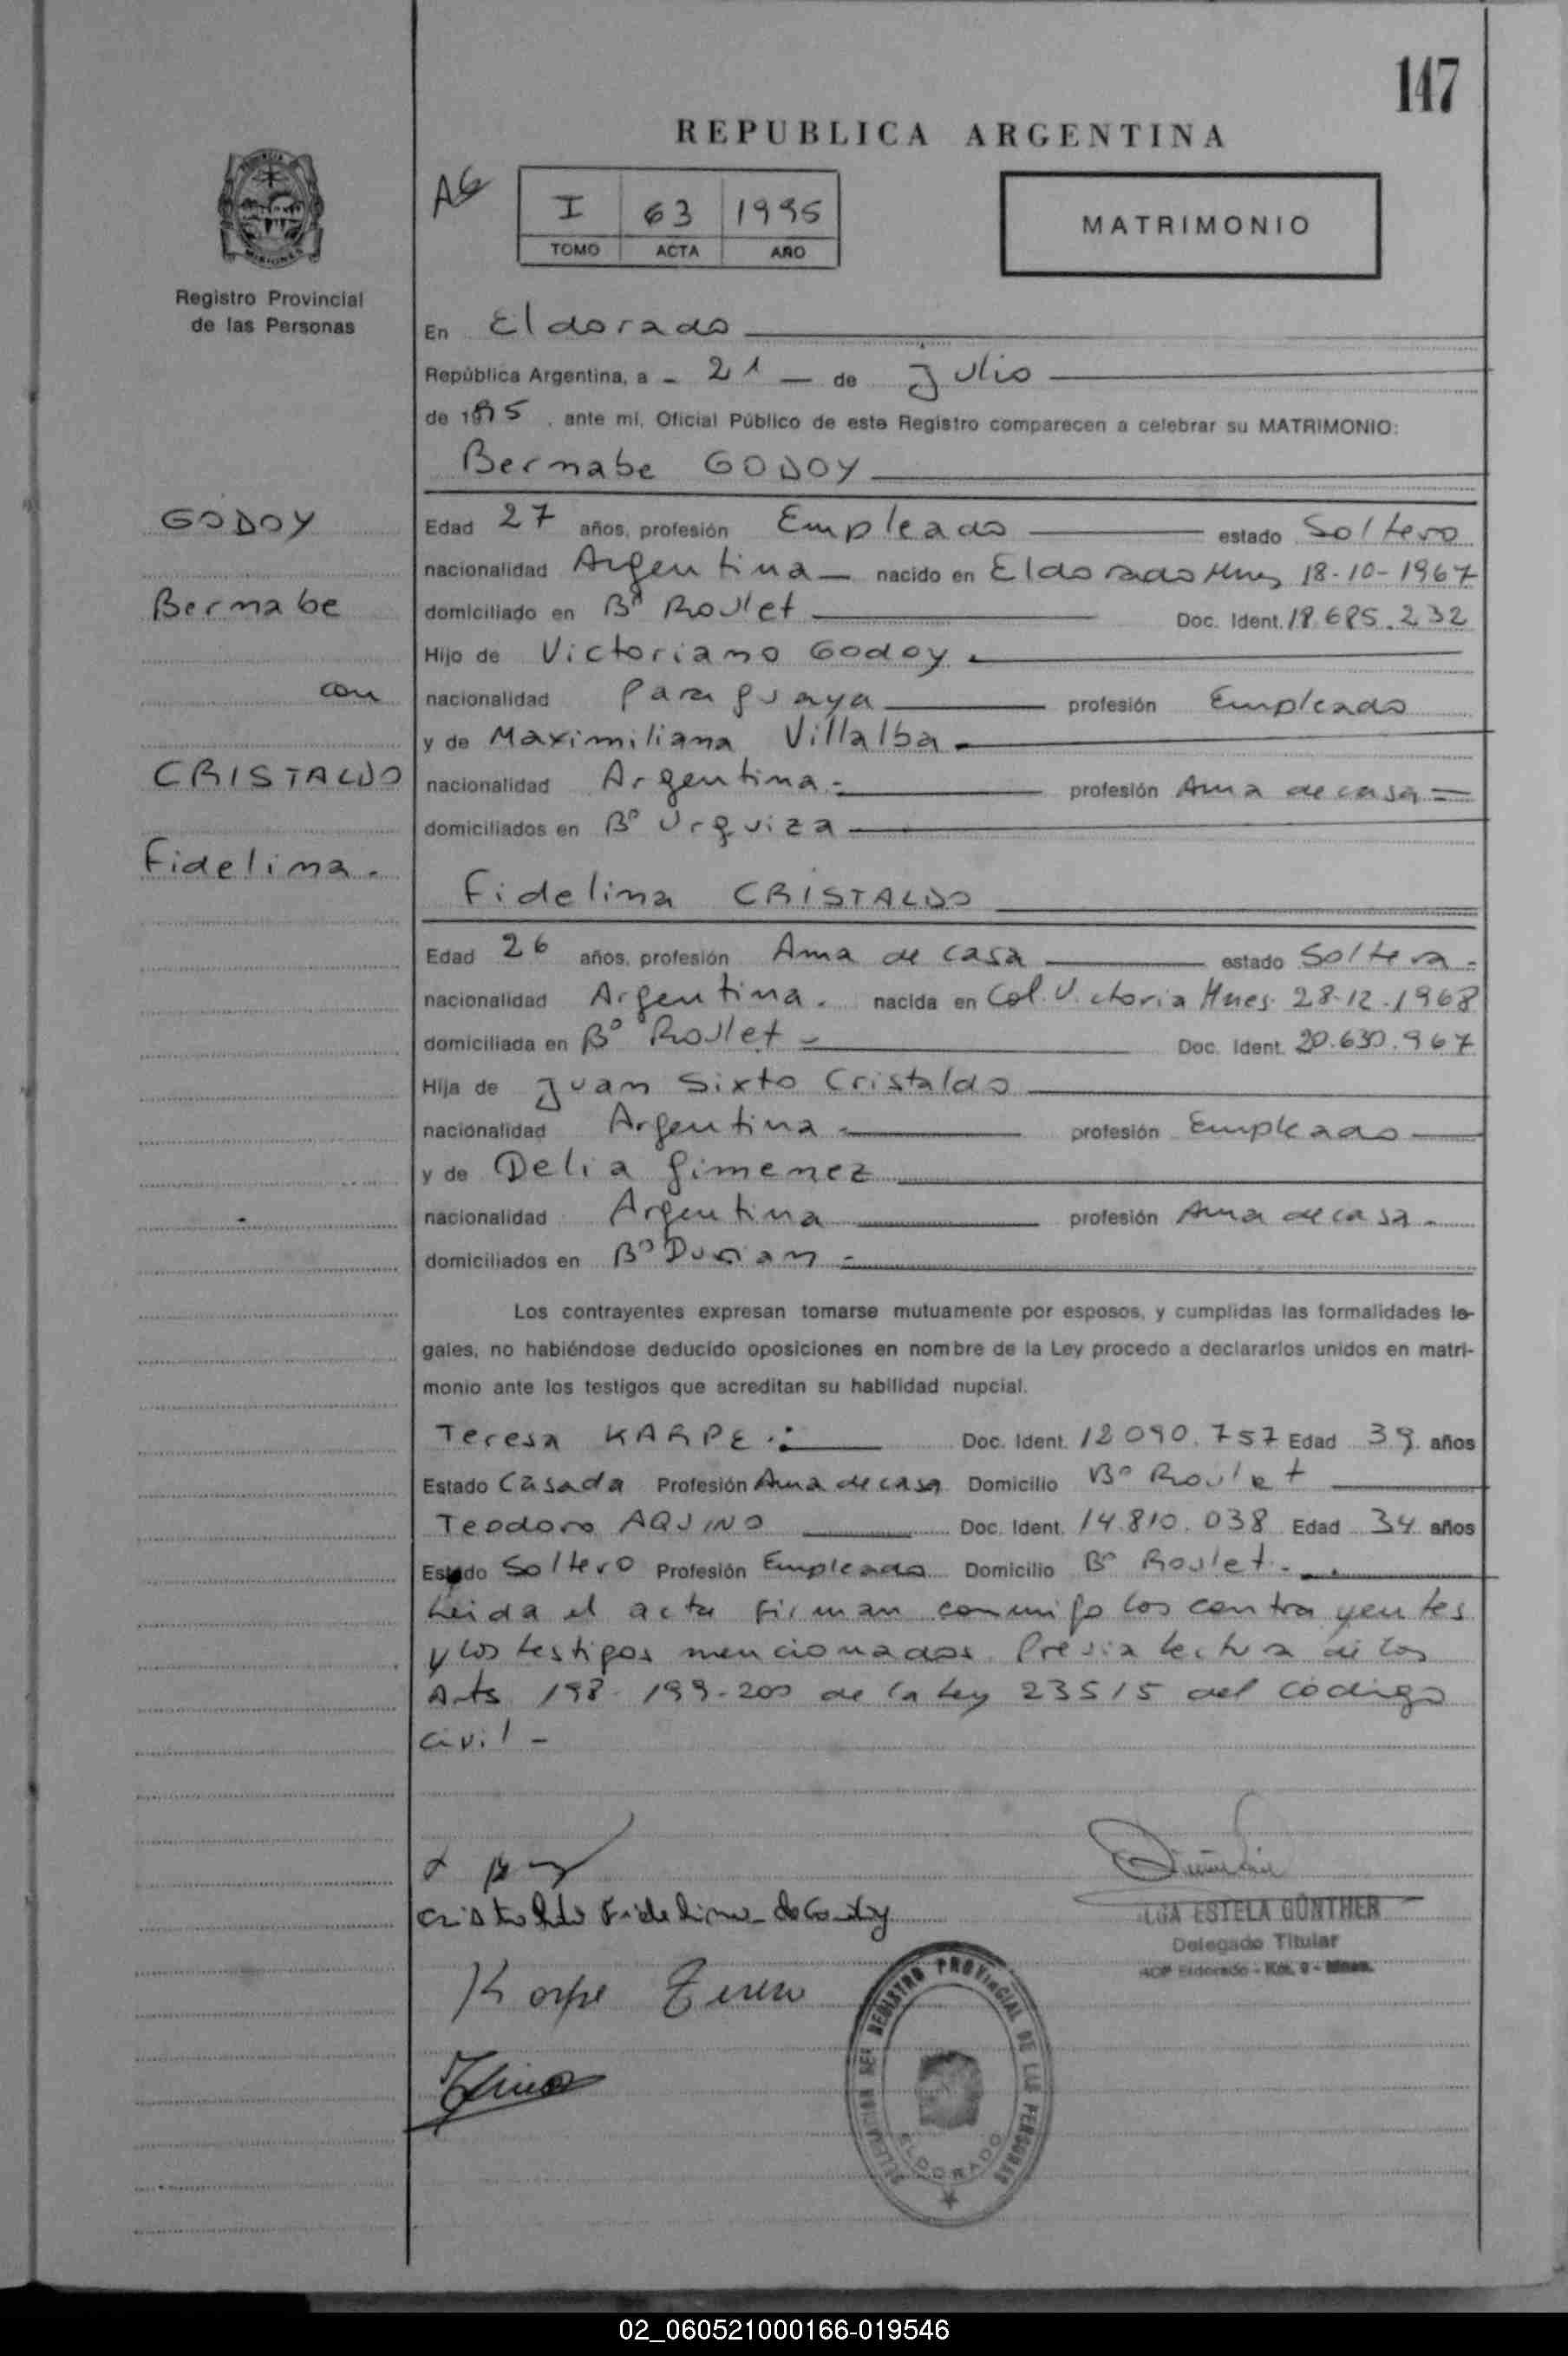 147
REPUBLICA ARGENTINA
AG
I 63 1995
TOMO ACTA AÑO
MATRIMONIO
Registro Provincial
de las Personas
En Eldorado
República Argentina, a - 21 - de Julio
de 1995, ante mí, Oficial Público de este Registro comparecen a celebrar su MATRIMONIO:
Bernabe GODOY
GODOY
Bernabe
con
CRISTALDO
Fidelina.
Edad 27 años, profesión Empleado estado Soltero
nacionalidad Argentina nacido en Eldorado Mnes 18-10-1967
domiciliado en Bº Roulet Doc. Ident. 18.685.232
Hijo de Victoriano Godoy.
nacionalidad Paraguaya profesión Empleado
y de Maximiliana Villalba.
nacionalidad Argentina.- profesión Ama de casa
domiciliados en Bº Urquiza
Fidelina CRISTALDO
Edad 26 años, profesión Ama de casa estado Soltera.
nacionalidad Argentina. nacida en Col. Victoria Mnes. 28-12-1968
domiciliada en Bº Roulet Doc. Ident. 20.630.967
Hija de Juan Sixto Cristaldo
nacionalidad Argentina profesión Empleado
y de Delia Gimenez
nacionalidad Argentina profesión Ama de casa.
domiciliados en Bº
Los contrayentes expresan tomarse mutuamente por esposos, y cumplidas las formalidades le-
gales, no habiéndose deducido oposiciones en nombre de la Ley procedo a declararlos unidos en matri-
monio ante los testigos que acreditan su habilidad nupcial.
Teresa KARPE.- Doc. Ident. 12.090.757 Edad 39 años
Estado Casada Profesión Ama de casa Domicilio Bº Roulet
Teodoro AQUINO Doc. Ident. 14.810.038 Edad 34 años
Estado Soltero Profesión Empleado Domicilio Bº Roulet.
Leida el acta firman conmigo los contrayentes
y los testigos mencionados. Previa lectura de los
Arts 198-199-200 de la Ley 23515 del codigo
civil -
Cristaldo Fidelina de Godoy
Karpe Teresa
LGA ESTELA GÜNTHER
Delegado Titular
Eldorado - Km. 9 - Mnes.
DELEGACION DEL REGISTRO PROVINCIAL DE LAS PERSONAS
ELDORADO
02_060521000166-019546